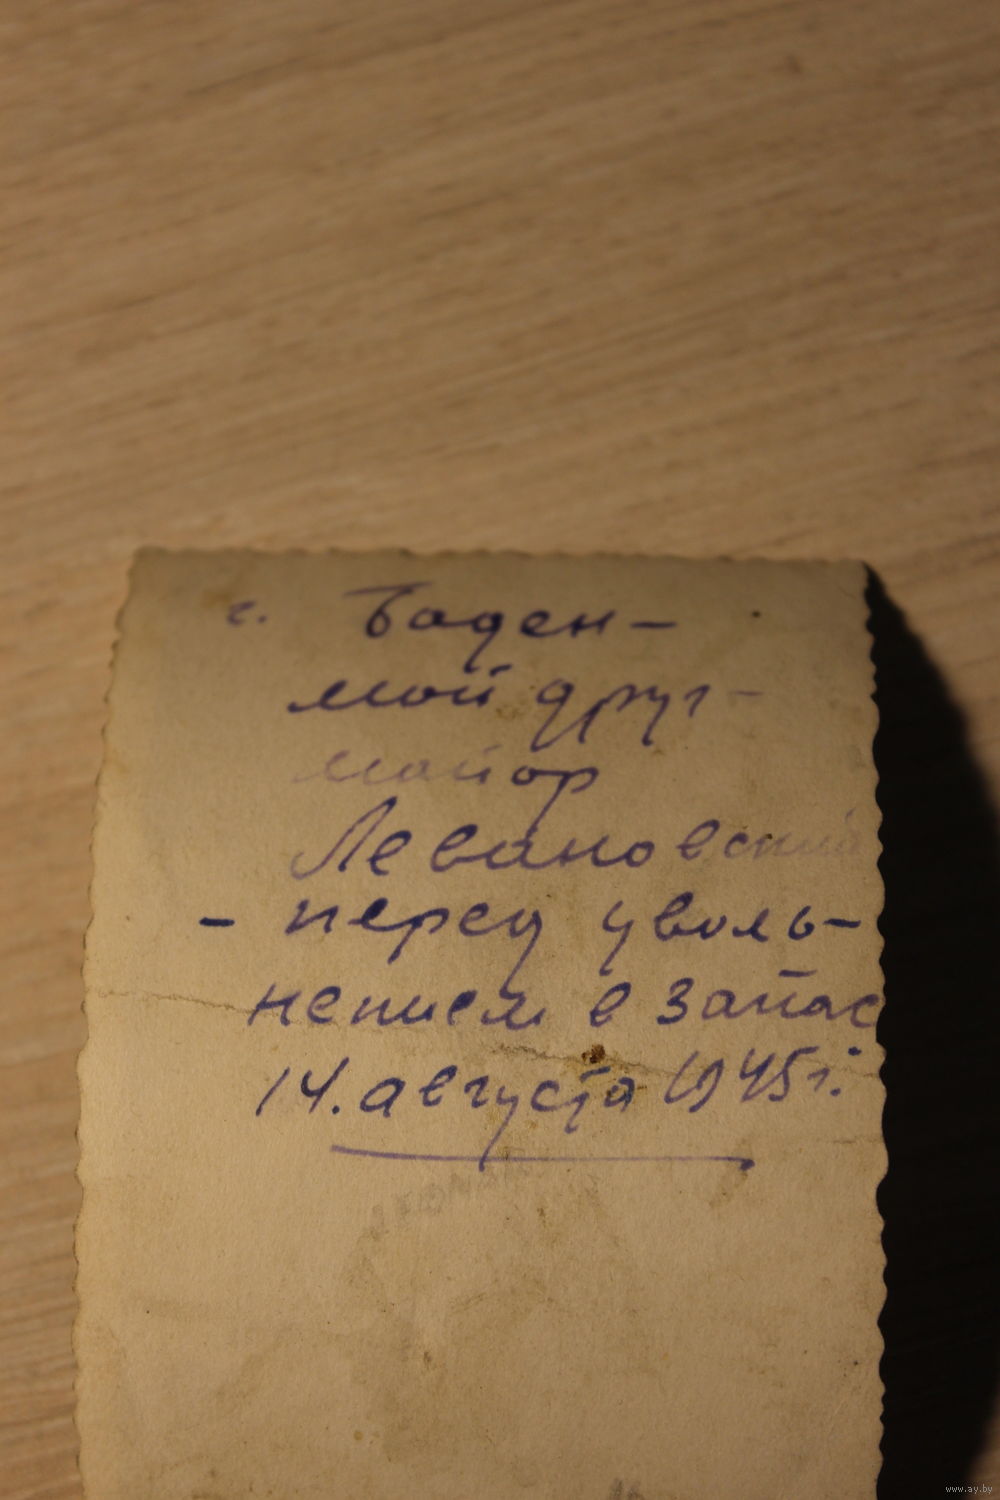 г. Баден-
мой друг-
майор
Левановский
- перед уволь-
нением в запас
14. августа 1945 г.
www.ay.by